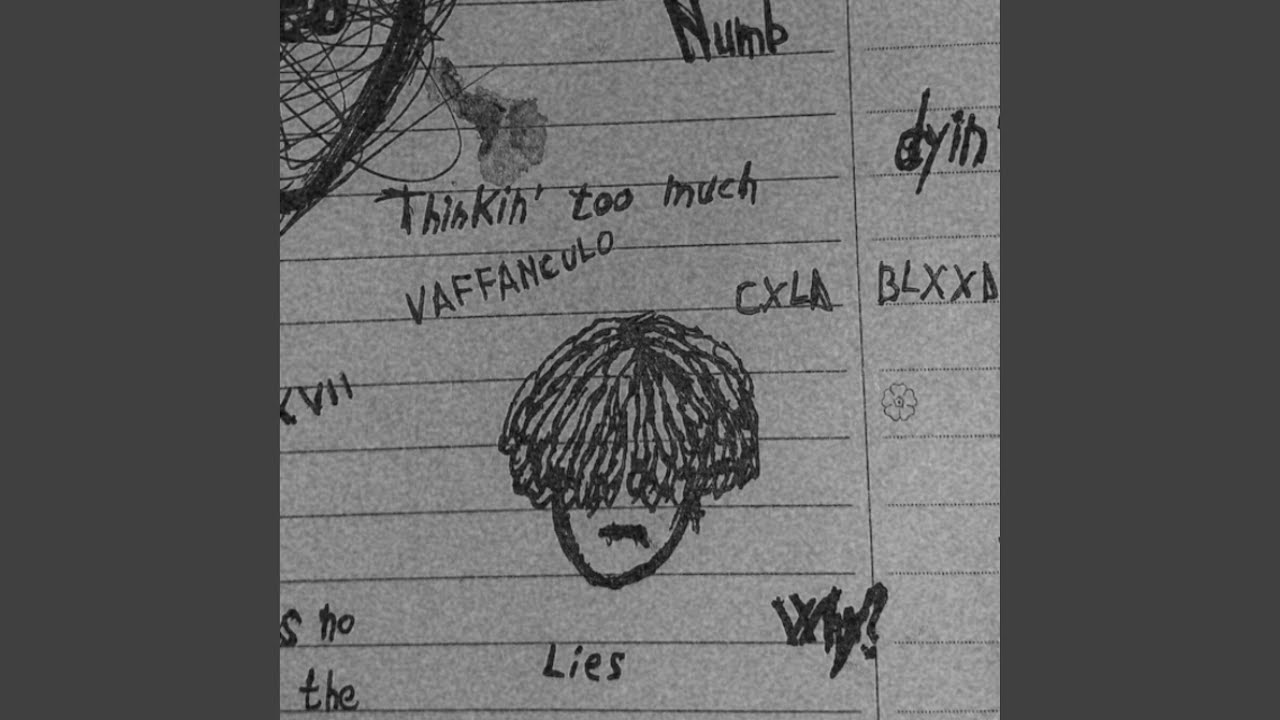 Numb
dyin'
Thinkin' too much
VAFFANCULO
CXLA
BLXXD
XVII
s no
Why?
Lies
the